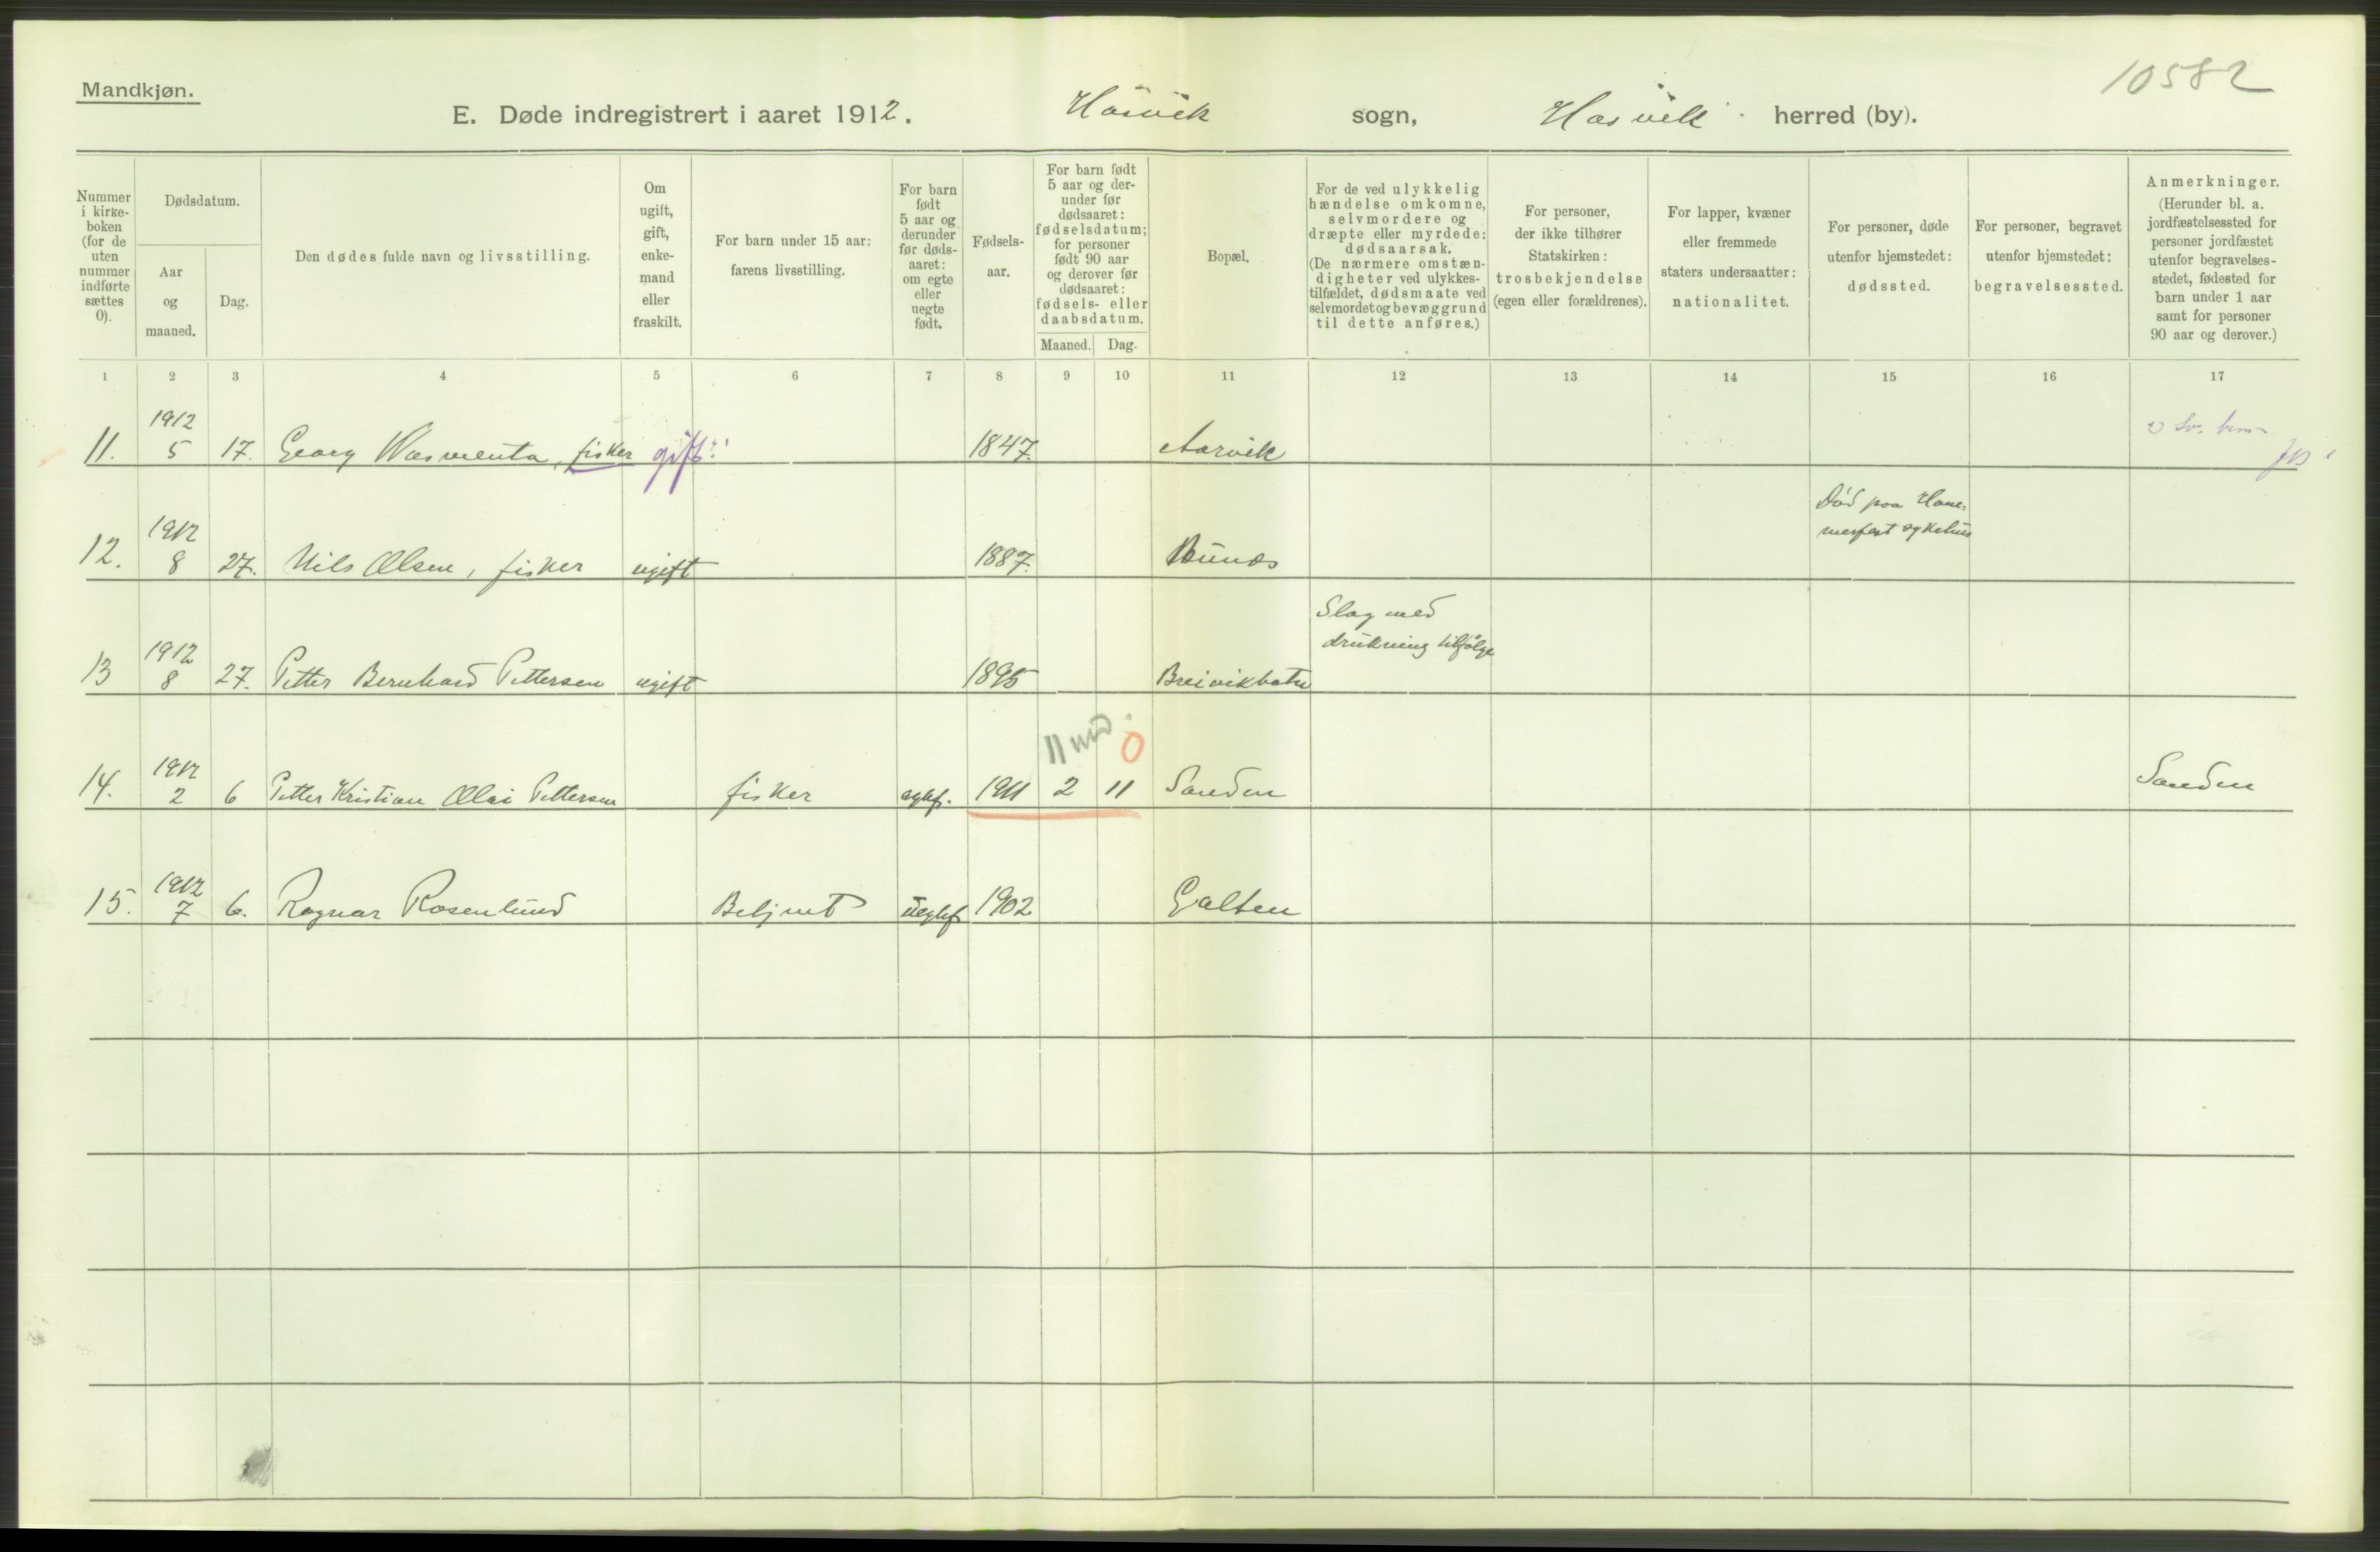 Mandkjøn.
10582
E. Døde indregistrert i aaret 1912. Hasvik sogn, Hasvik herred (by).
Nummer i kirke- boken (for de uten nummer indførte sættes 0).
Dødsdatum.
Aar og maaned.
Dag.
Den dødes fulde navn og livsstilling.
Om ugift, gift, enke- mand eller fraskilt.
For barn under 15 aar: farens livsstilling.
For barn født 5 aar og derunder før døds- aaret: om egte eller uegte født.
Fødsels- aar.
For barn født 5 aar og der- under før dødsaaret: fødselsdatum; for personer født 90 aar og derover før dødsaaret: fødsels- eller daabsdatum.
Maaned. Dag.
Bopæl.
For de ved ulykkelig hændelse omkomne, selvmordere og dræpte eller myrdede: dødsaarsak. (De nærmere omstæn- digheter ved ulykkes- tilfældet, dødsmaate ved selvmordet og bevæggrund til dette anføres.)
For personer, der ikke tilhører Statskirken: trosbekjendelse (egen eller forældrenes).
For lapper, kvæner eller fremmede staters undersaatter: nationalitet.
For personer, døde utenfor hjemstedet: dødssted.
For personer, begravet utenfor hjemstedet: begravelsessted.
Anmerkninger. (Herunder bl. a. jordfæstelsessted for personer jordfæstet utenfor begravelses- stedet, fødested for barn under 1 aar samt for personer 90 aar og derover.)
1 2 3 4 5 6 7 8 9 10 11 12 13 14 15 16 17
11. 1912 5 17. Georg Wasmenta, fisker gift 1847. Aarvik
12. 1912 8 27. Nils Olsen, fisker ugift 1887. Død paa Ham- merfest sykehus
13 1912 8 27. Petter Bernhard Pettersen ugift 1895 Breivikbotn Slag med drukning tilfølge
14. 1912 2 6 Petter Kristian Olai Pettersen fisker egtef. 1911 2 11 11 md 0 Sanden Sanden
15. 1912 7 6. Ragnar Rosenlund Betjent uegtef 1902 Galten